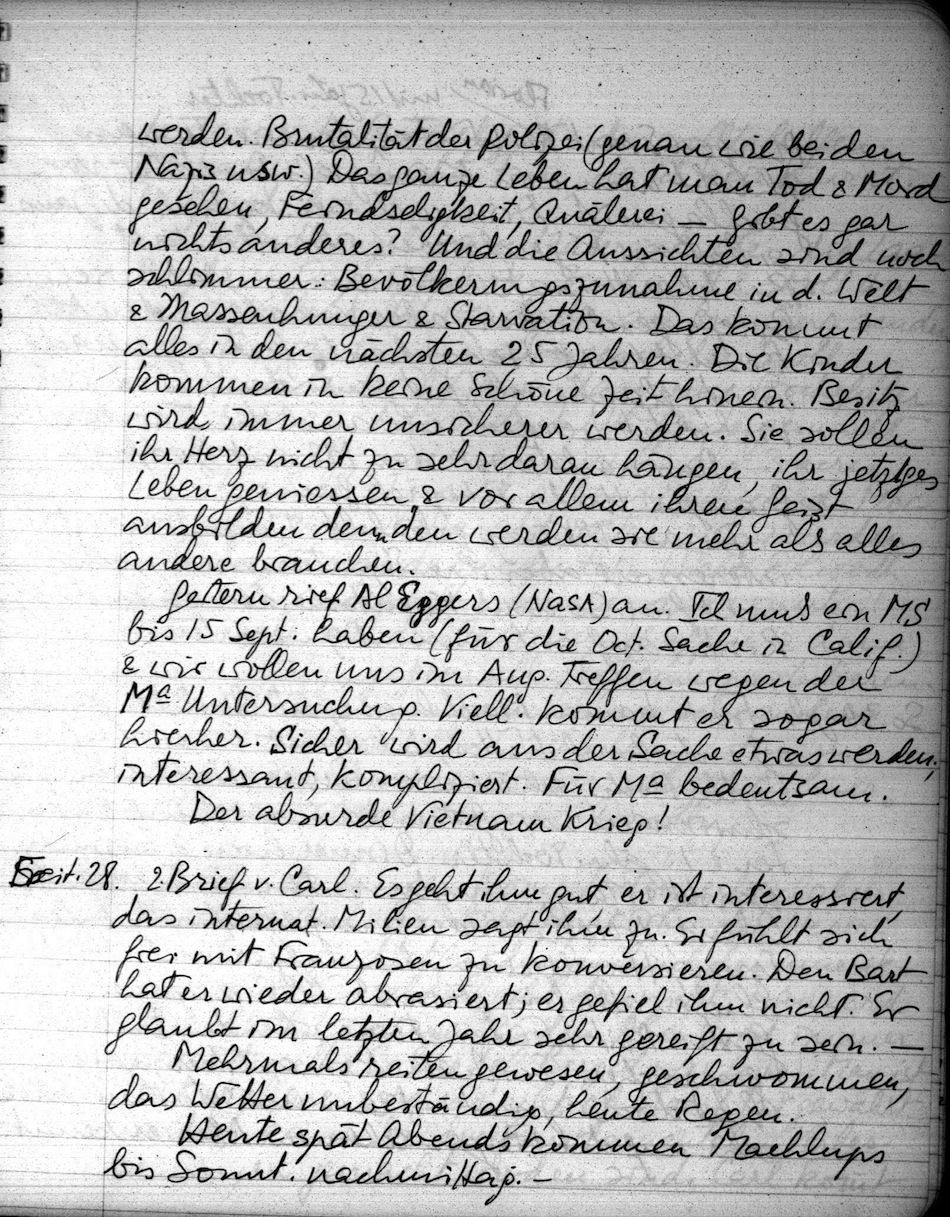 werden. Brutalität der Polizei (genau wie bei den
Nazis usw.) Das ganze Leben hat man Tod & Mord
gesehen, Feindseligkeit, Quälerei — gibt es gar
nichts anderes? Und die Aussichten sind noch
schlimmer: Bevölkerungszunahme in d. Welt
& Massenhunger & Starvation. Das kommt
alles in den nächsten 25 Jahren. Die Kinder
kommen in keine schöne Zeit hinein. Besitz
wird immer unsicherer werden. Sie sollen
ihr Herz nicht zu sehr daran hängen, ihr jetziges
Leben geniessen & vor allem ihren Geist
ausbilden denn den werden sie mehr als alles
andere brauchen.
Gestern rief Al Eggers (NASA) an. Ich muss ein MS
bis 15 Sept. haben (für die Oct. Sache in Calif.)
& wir wollen uns im Aug. treffen wegen der
Ma Untersuchung. Viell. kommt er sogar
hierher. Sicher wird aus der Sache etwas werden,
interessant, kompliziert. Für Ma bedeutsam.
Der absurde Vietnam Krieg!
Freit. 28. 2. Brief v. Carl. Es geht ihm gut, er ist interessiert,
das internat. Milieu sagt ihm zu. Er fühlt sich
frei mit Franzosen zu konversieren. Den Bart
hat er wieder abrasiert; er gefiel ihm nicht. Er
glaubt im letzten Jahr sehr gereift zu sein. —
Mehrmals reiten gewesen, geschwommen,
das Wetter unbeständig, heute Regen.
Heute spät Abends kommen Machlups
bis Sonnt. nachmittag. —